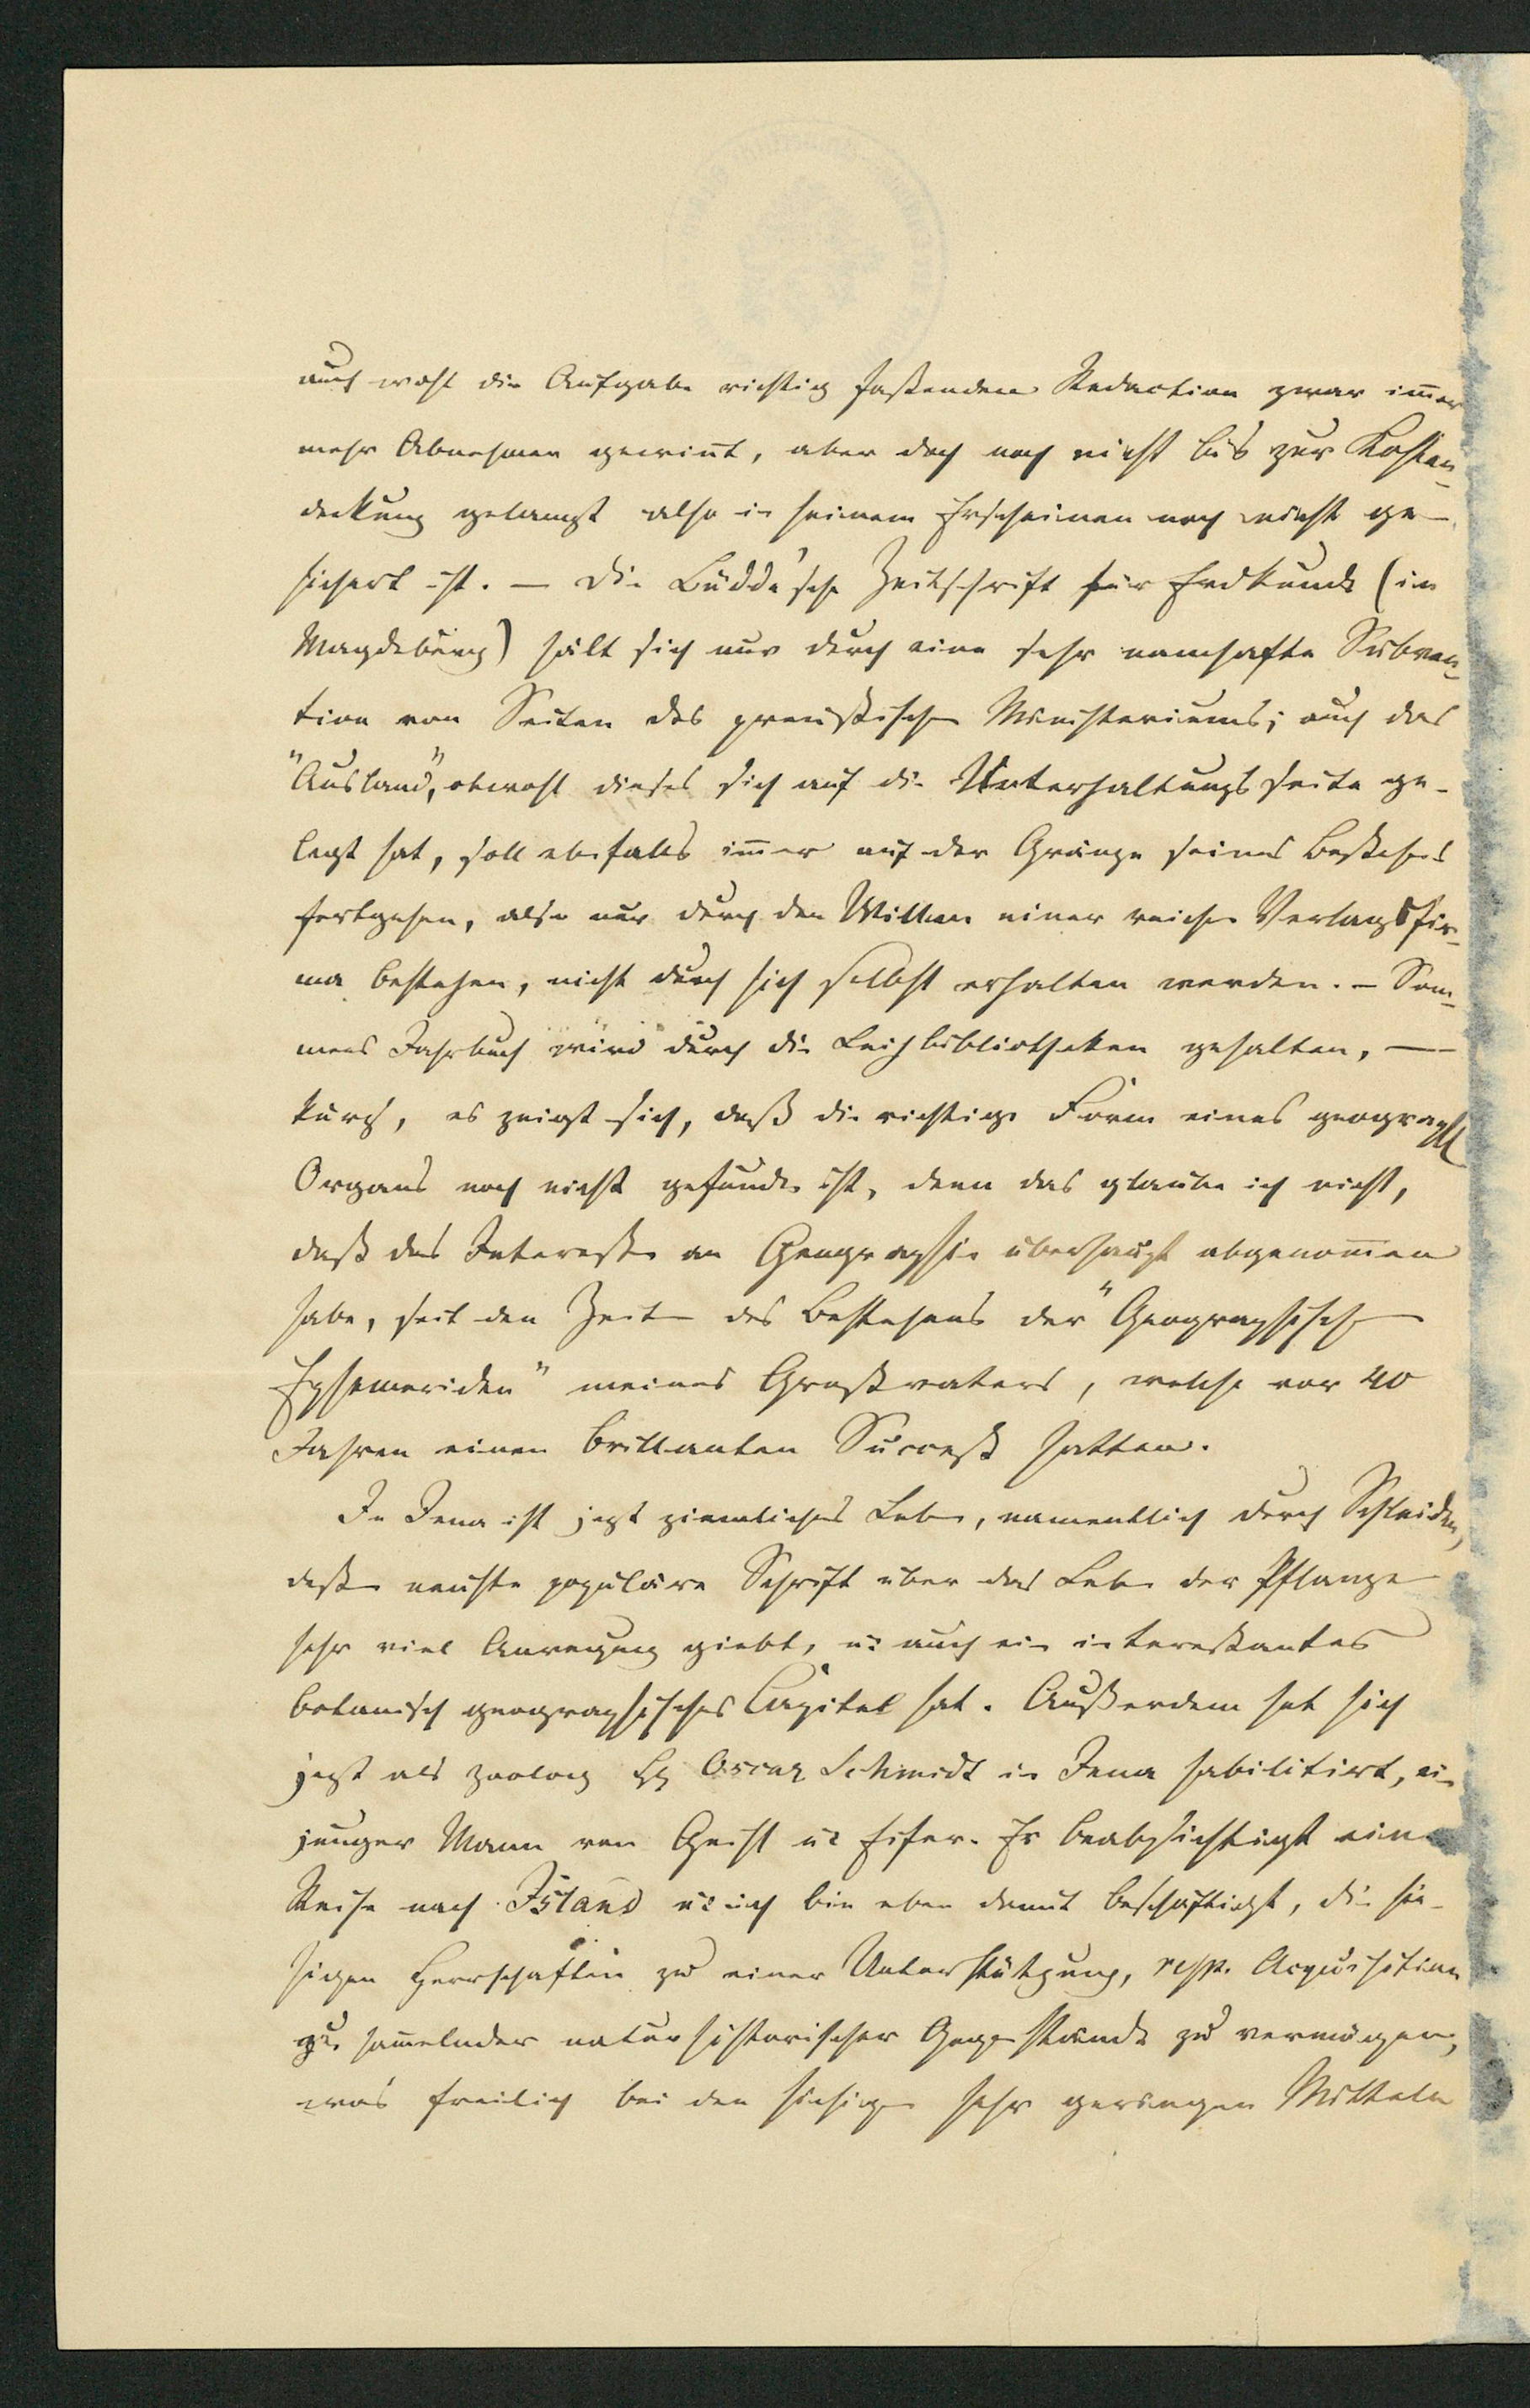 auch wohl die Aufgabe richtig faßenden Redaction zwar im̅er
mehr Abnehmer gewin̅t, aber doch noch nicht bis zur Kosten-
deckung gelangt also in seinem Erscheinen noch nicht ge-
sichert ist. — Die Lüdde'sche Zeitschrift für Erdkunde (in
Magdeburg) hält sich nur durch eine sehr namhafte Subven-
tion von Seiten des preußischen Ministeriums; auch das
"Ausland", obwohl dieses sich auf die Unterhaltungsseite ge-
legt hat, soll ebenfalls im̅er auf der Gränze seines Bestehens
fortgehen, also nur durch den Willen einer reichen Verlagsfir-
ma bestehen, nicht durch sich selbst erhalten werden. – Som-
mers Jahrbuch wird durch die Leihbibliotheken gehalten, —
kurz, es zeigt sich, daß die richtige Form eines geograph
Organs noch nicht gefunden ist, denn das glaube ich nicht,
daß das Interesse an Geographie überhaupt abgenom̅en
habe, seit den Zeiten des Bestehens der "Geographischen
Ephemeriden" meines Großvaters, welche vor 40
Jahren einen brillanten Succeß hatten.
In Jena ist jezt ziemliches Leben, namentlich durch Schleiden,
deßen neuste populäre Schrift über das Leben der Pflanze
sehr viel Anregung giebt, u: auch ein intereßantes
botanisch geographisches Capitel hat. Außerdem hat sich
jezt als Zoolog Hr Oscar Schmidt in Jena habilitirt, ein
junger Mann von Geist u: Eifer. Er beabsichtigt eine
Reise nach Island u: ich bin eben damit beschäftigt, die hie-
sigen Herrschaften zu einer Unterstützung, resp. Acquisition
zu sam̅elnder naturhistorischer Gegenstände zu vermögen,
was freilich bei den hiesigen sehr geringen Mitteln